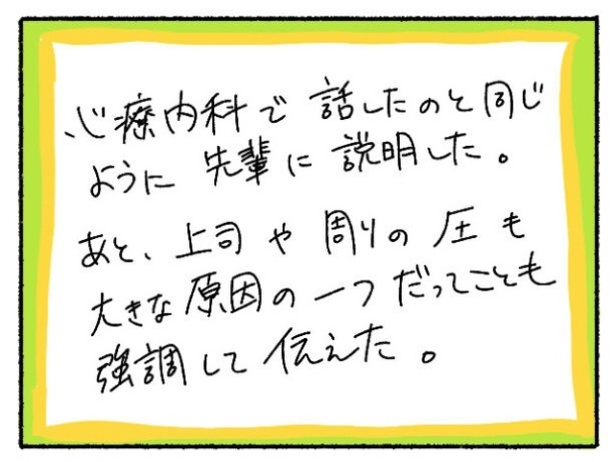 心療内科で 話したのと同じ
ように 先輩に 説明した。
あと、上司や 周りの 圧も
大きな原因の一つだってことも
強調して伝えた。